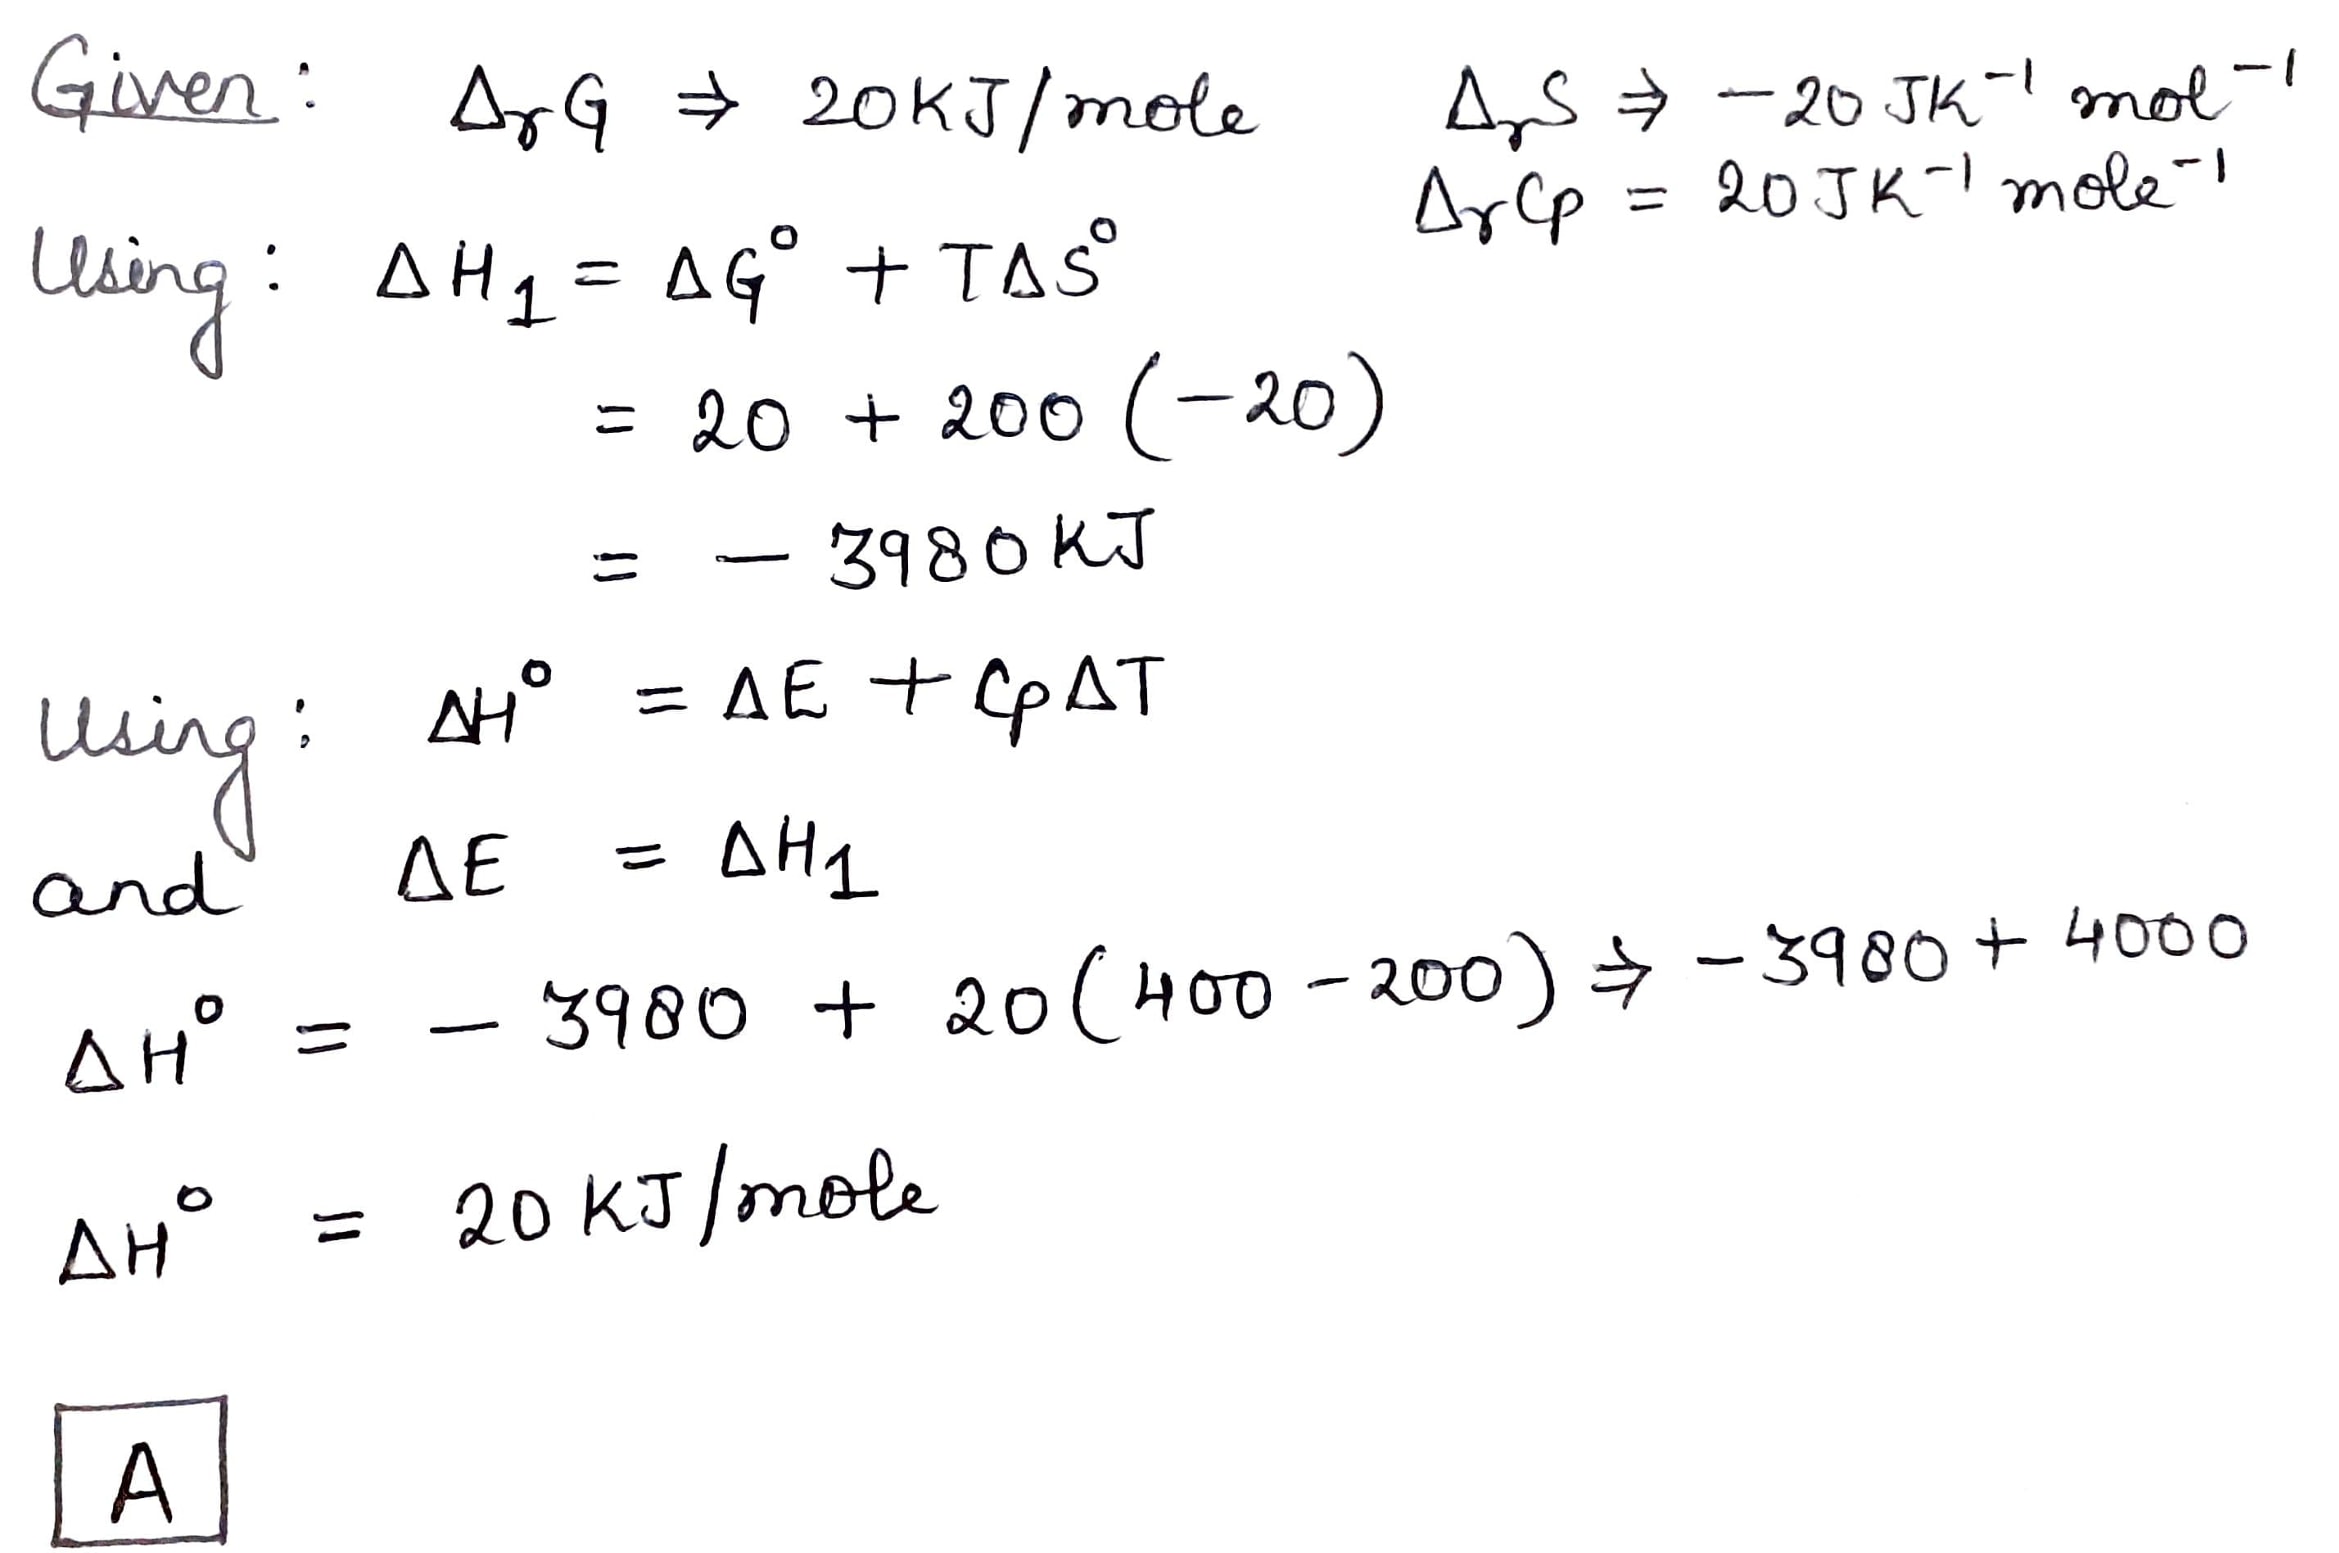 Given : ΔrG ⇒ 20KJ/mole ΔrS ⇒ -20 JK⁻¹ mol⁻¹
ΔrCp = 20 JK⁻¹ mole⁻¹
Using : ΔH₁ = ΔG° + TΔS°
= 20 + 200 (-20)
= - 3980 KJ
Using : ΔH° = ΔE + CpΔT
and ΔE = ΔH₁
ΔH° = - 3980 + 20(400-200) ⇒ -3980 + 4000
ΔH° = 20 KJ/mole
A